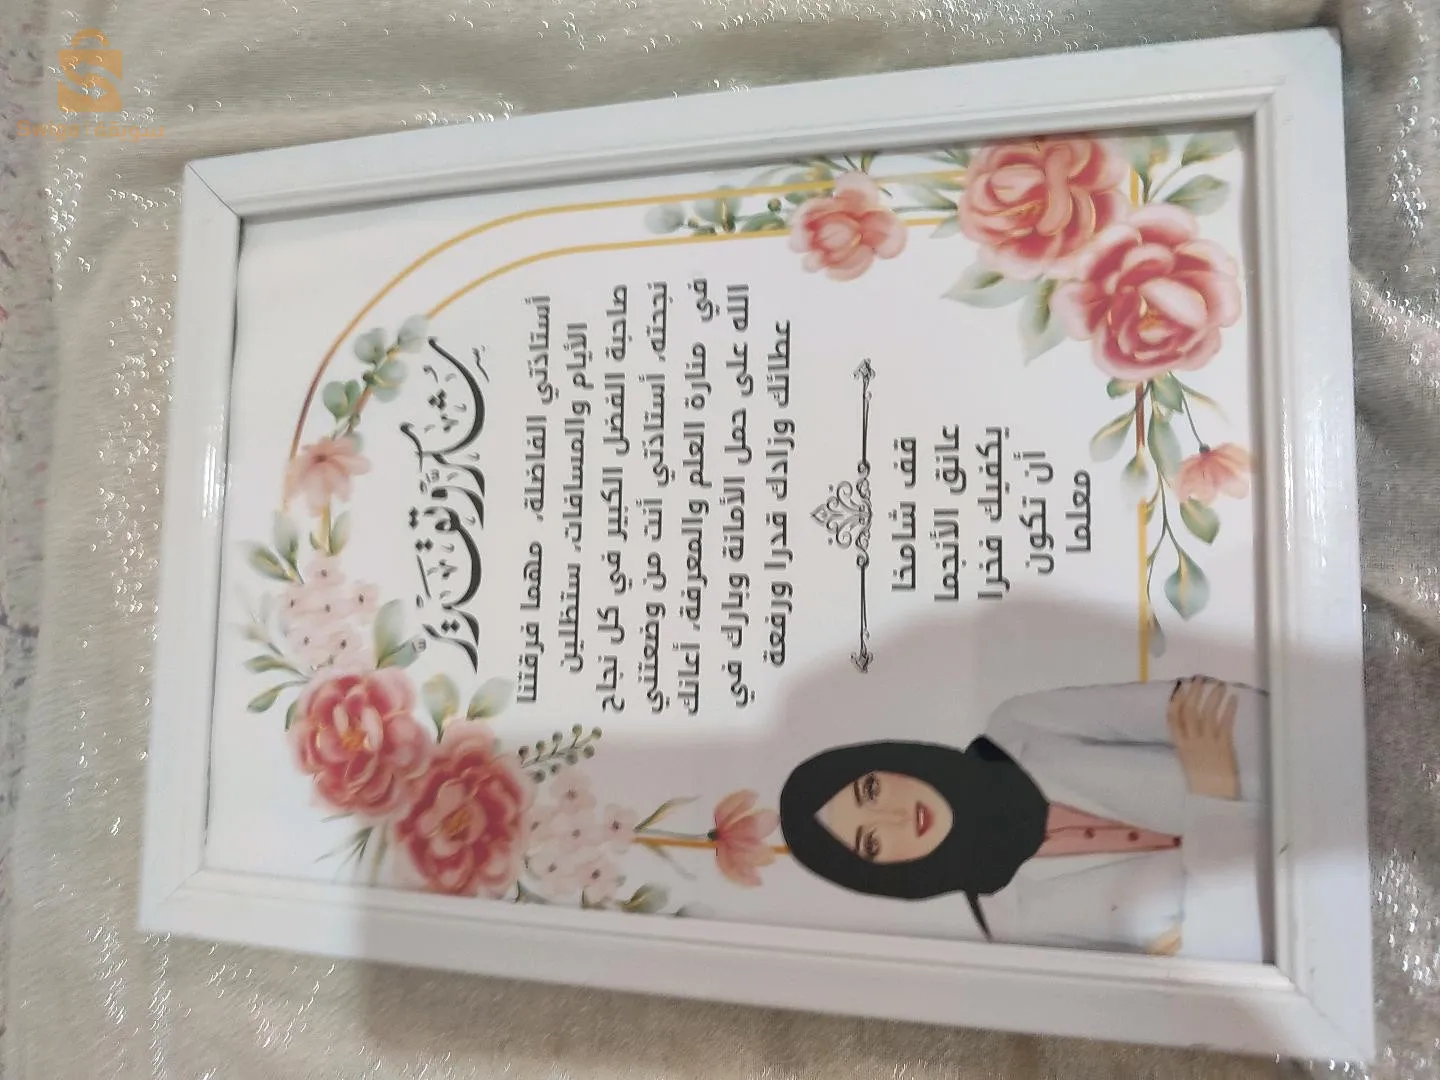 شكر وتقدير
أستاذتي الفاضلة، مهما فرقتنا
الأيام والمسافات، ستظلين
صاحبة الفضل الكبير في كل نجاح
نجحته، أستاذتي أنت من وضعتني
في منارة العلم والمعرفة، أعانك
الله على حمل الأمانة وبارك في
عطائك وزادك قدرا ورفعة
قف شامخا
عانق الأنجما
يكفيك فخرا
أن تكون
معلما
سويقة